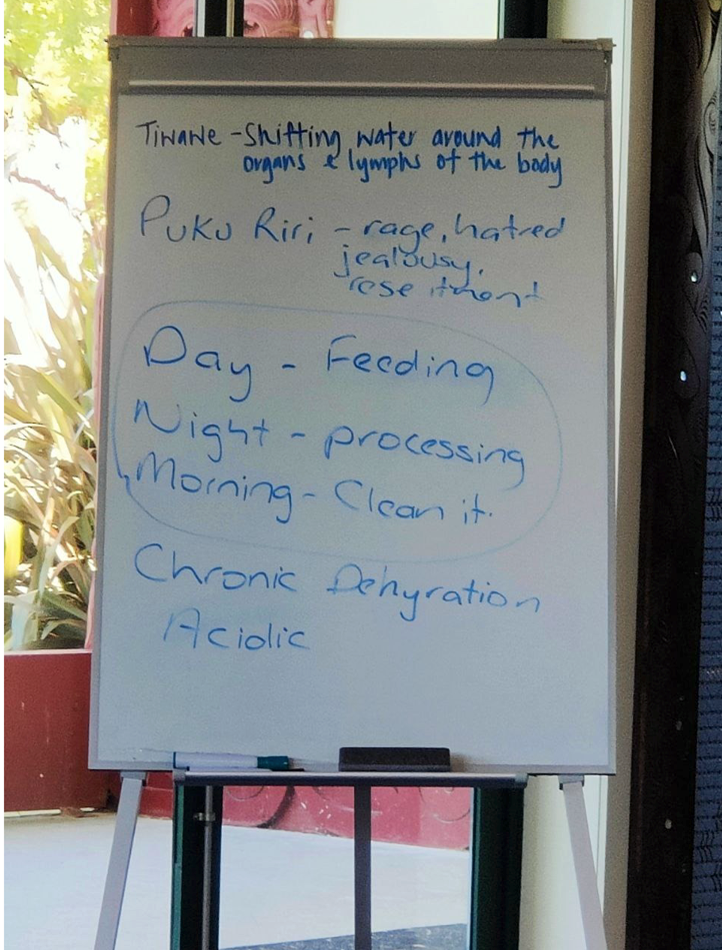 Tiwawe - Shifting water around the
organs & lymphs of the body
Puku Riri - rage, hatred
jealousy,
reseitment
Day - Feeding
Night - processing
Morning - Clean it.
Chronic Dehyration
Acidic